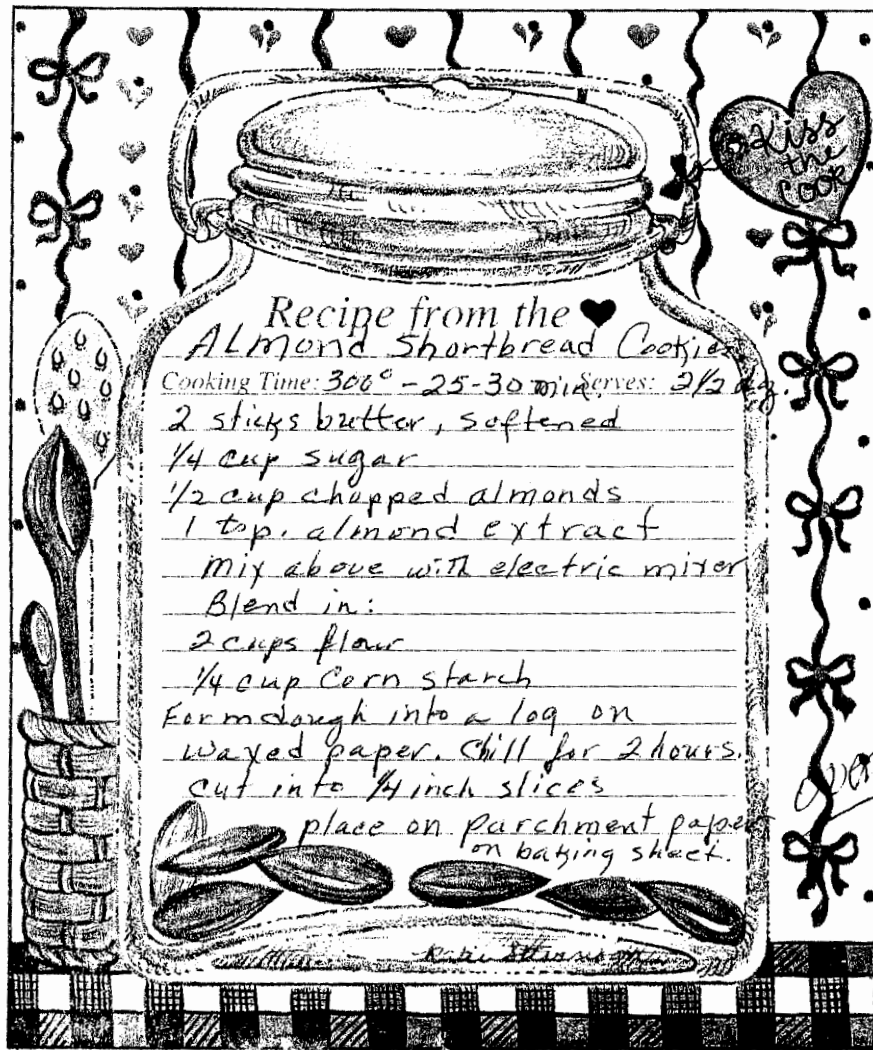 Kiss
the
Cook
Recipe from the ♥
Almond Shortbread Cookies
Cooking Time: 300° - 25-30 min. Serves: 2 1/2 dz.
2 sticks butter, softened
1/4 cup sugar
1/2 cup chopped almonds
1 tsp. almond extract
mix above with electric mixer
Blend in:
2 cups flour
1/4 cup Corn starch
Form dough into a log on
waxed paper. Chill for 2 hours.
cut into 1/4 inch slices
place on parchment paper
on baking sheet.
over